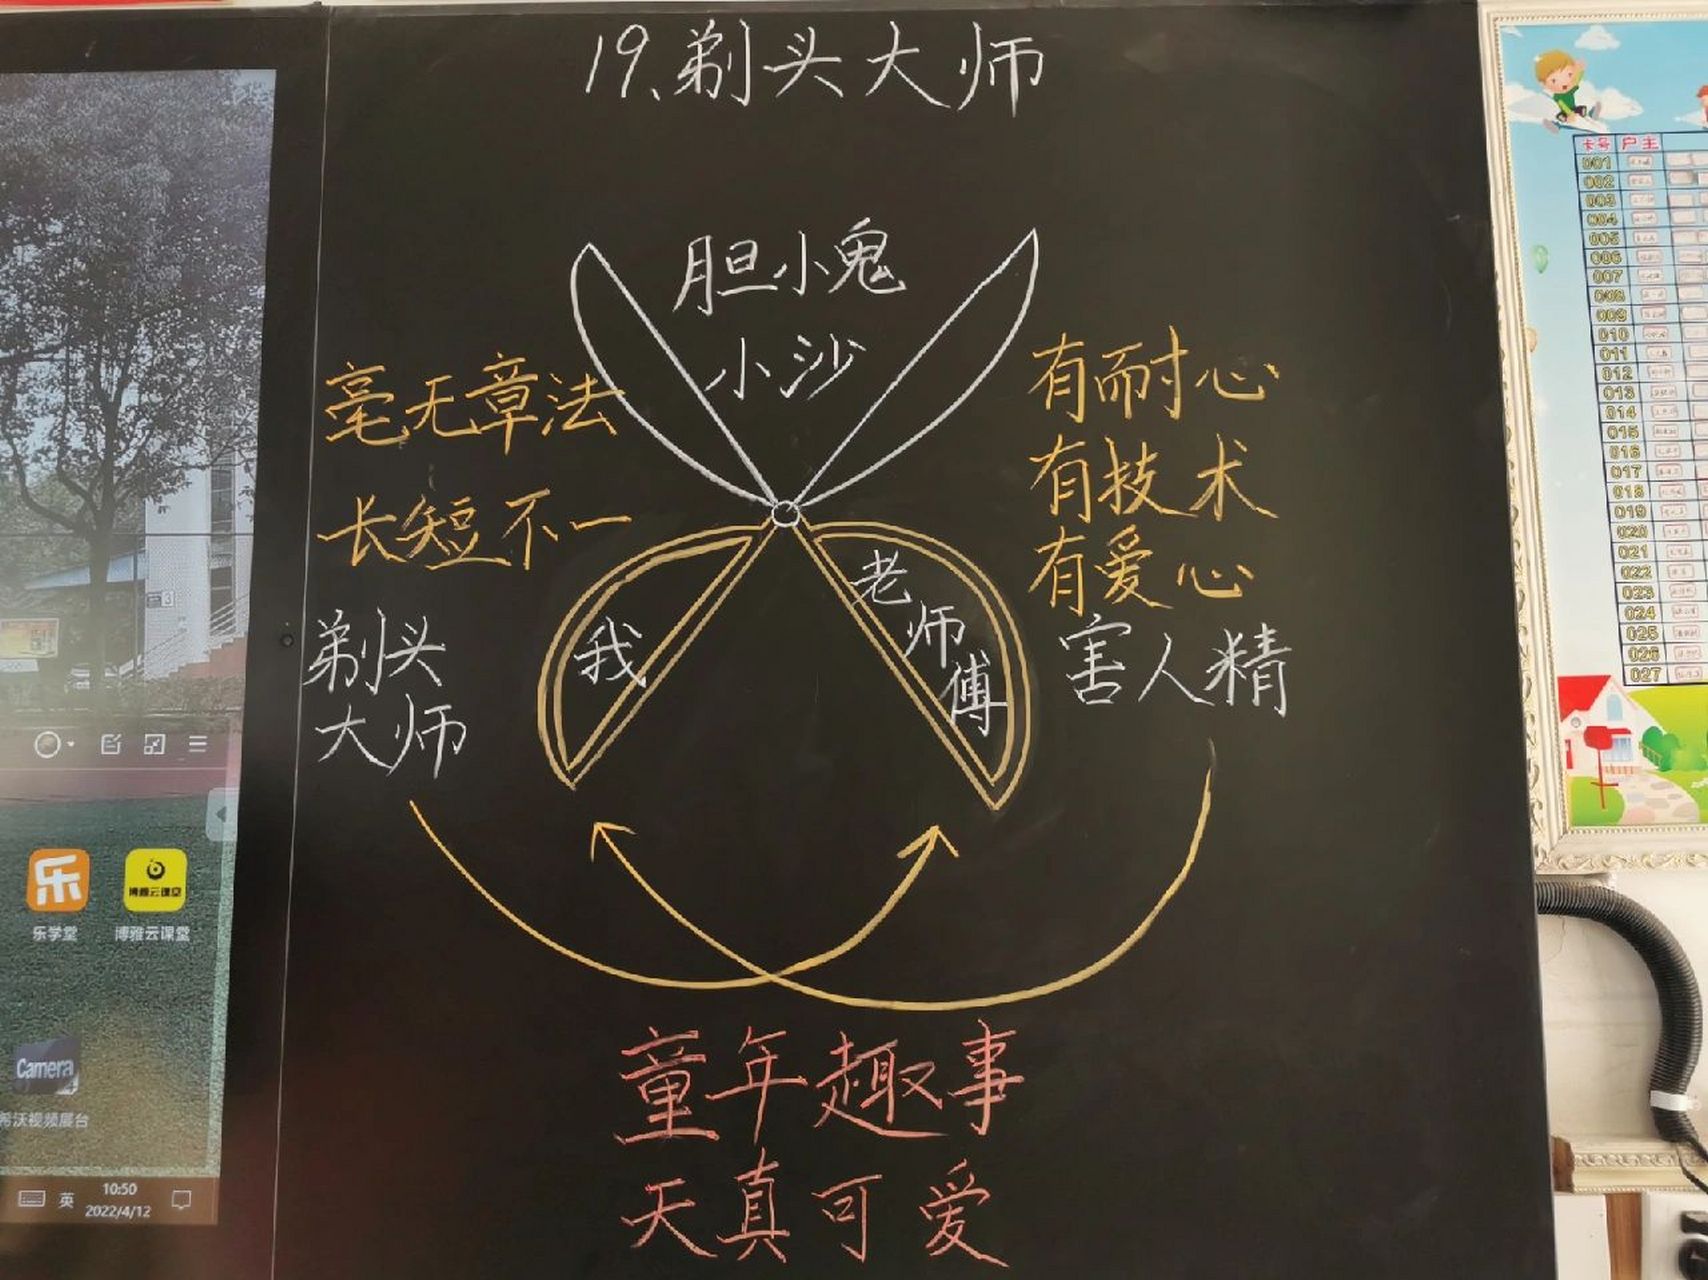 19、剃头大师
胆小鬼
小沙
毫无章法
长短不一
剃头
大师
我
老师傅
有耐心
有技术
有爱心
害人精
童年趣事
天真可爱
3
乐
乐学堂
博雅云课堂
博雅云课堂
Camera
希沃视频展台
英
10:50
2022/4/12
卡号 户主
001
002
003
004
005
006
007
008
009
010
011
012
013
014
015
016
017
018
019
020
021
022
023
024
025
026
027